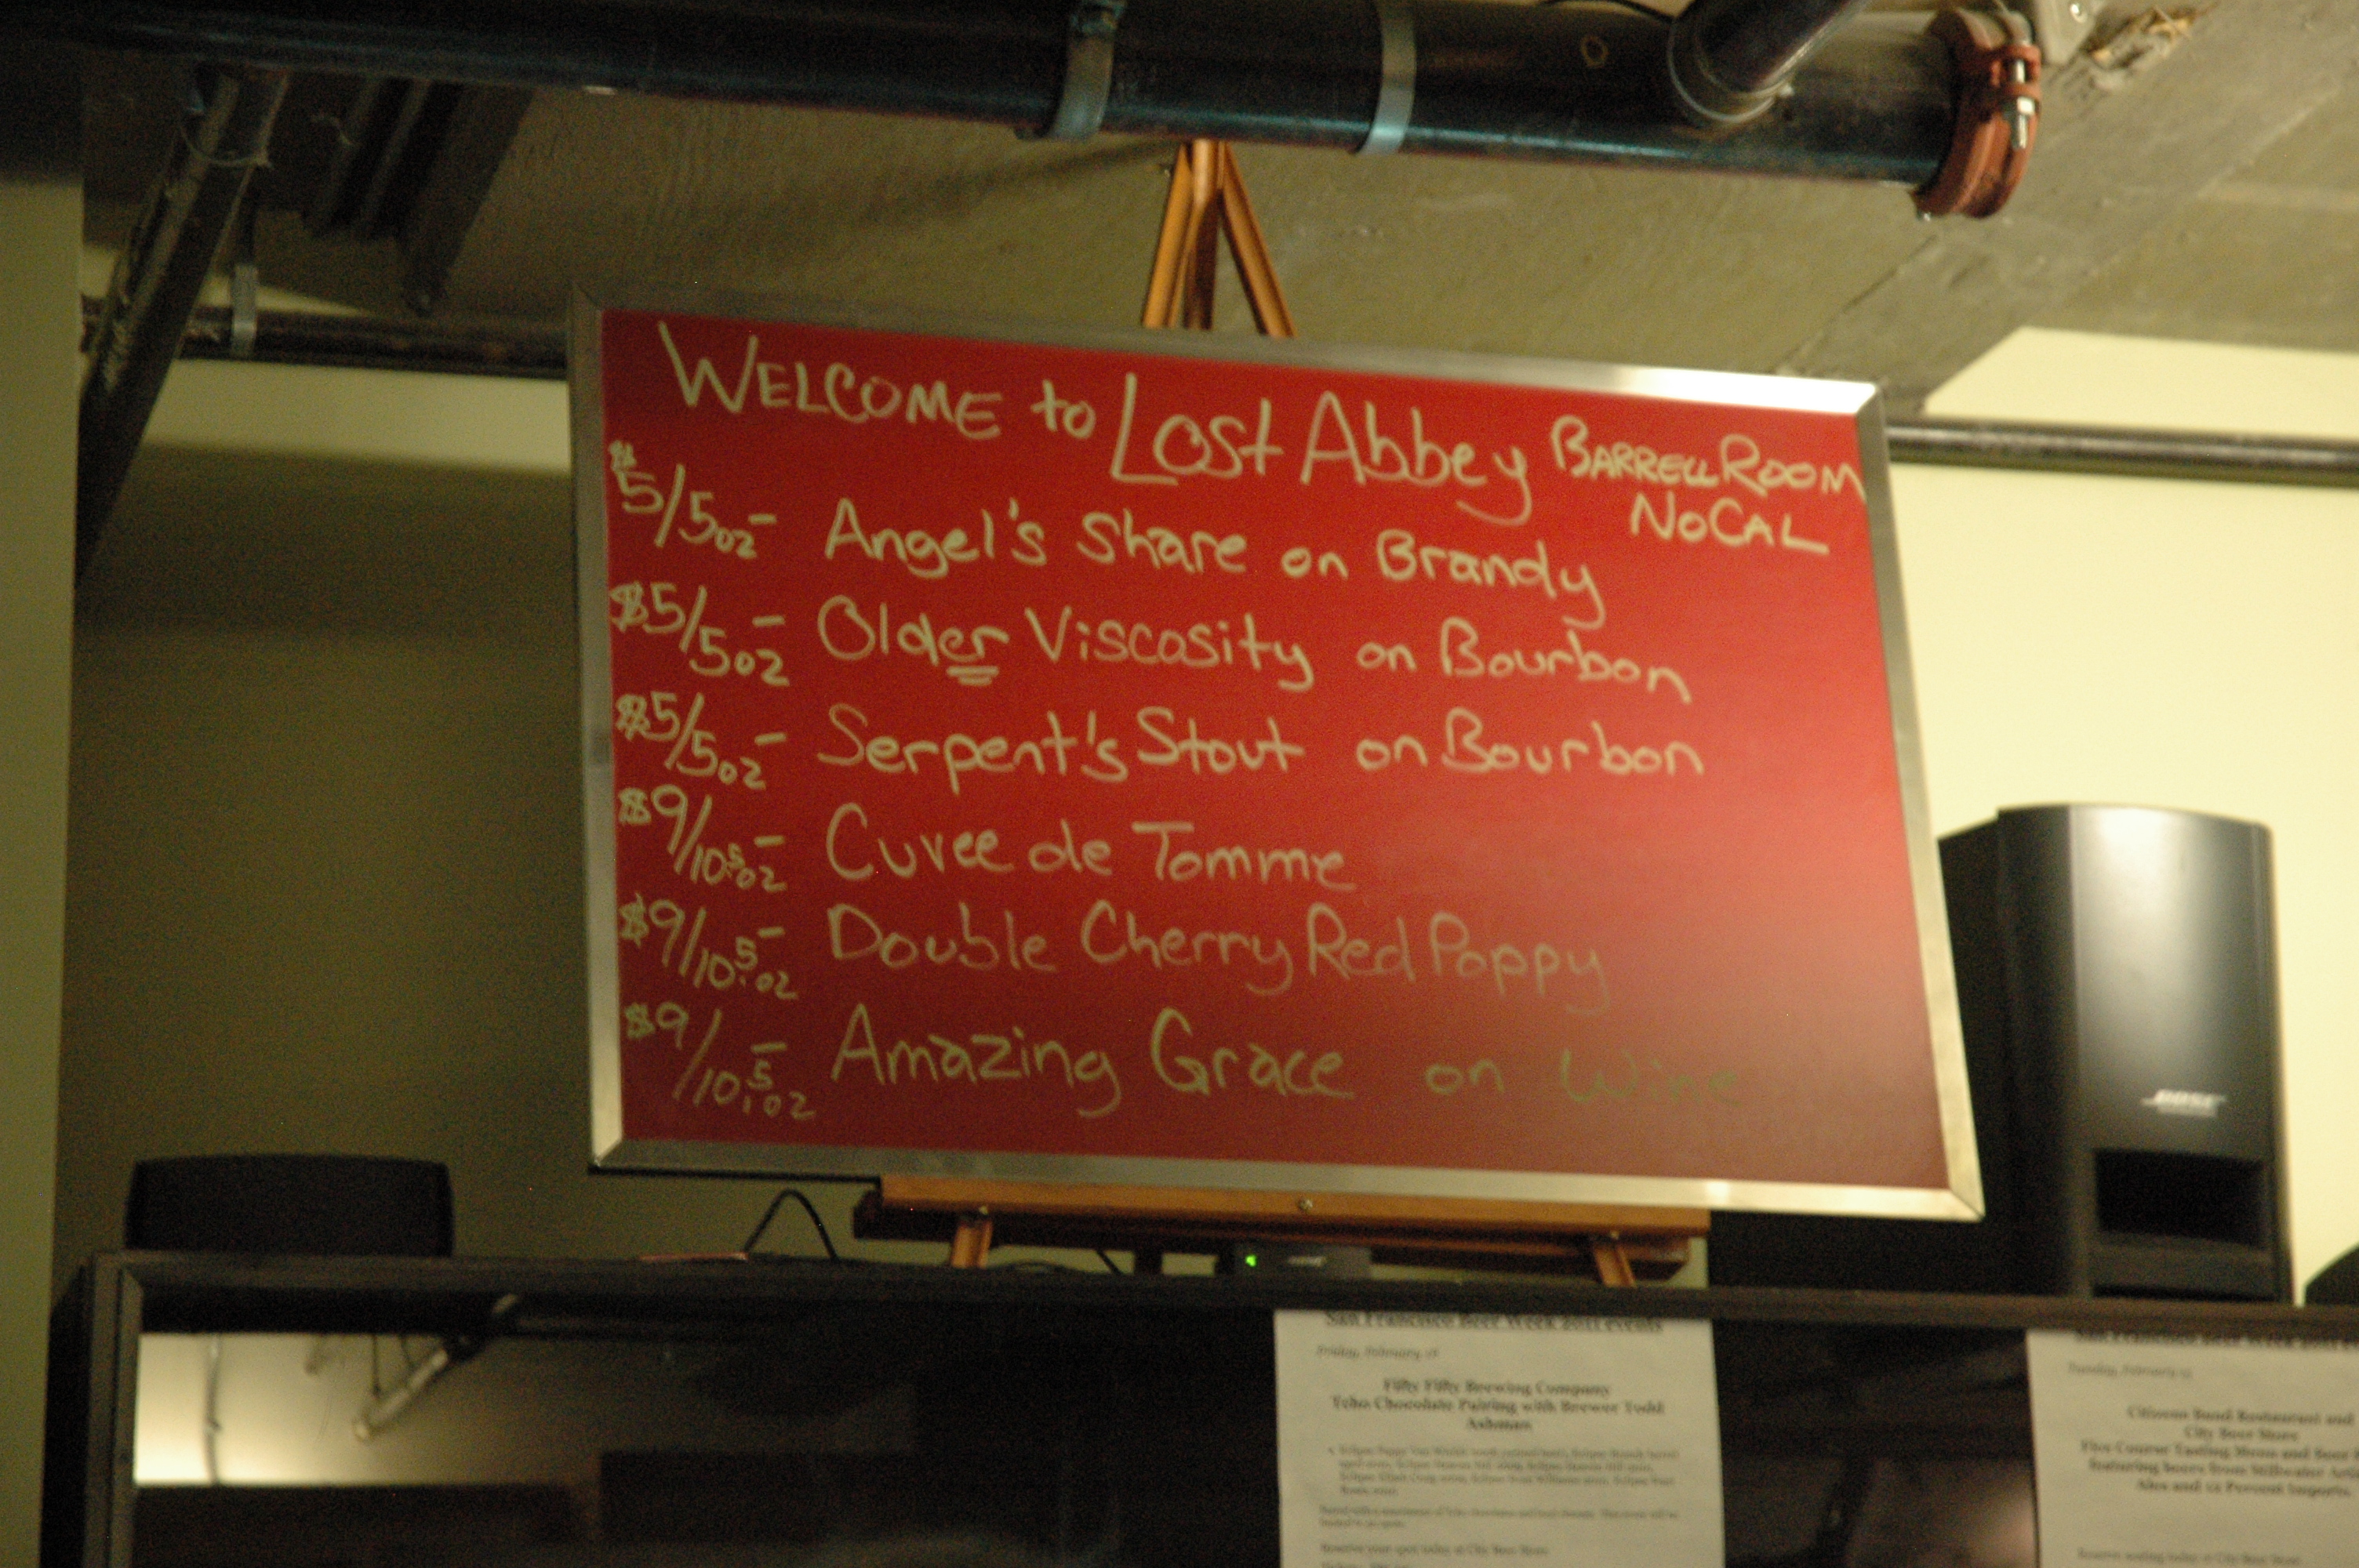 WELCOME to Lost Abbey BARRELL ROOM
NOCAL
$5/5oz - Angel's Share on Brandy
$5/5oz - Older Viscosity on Bourbon
$5/5oz - Serpent's Stout on Bourbon
$9/10.5oz - Cuvee de Tomme
$9/10.5oz - Double Cherry Red Poppy
$9/10.5oz - Amazing Grace on Wine
BOSE
San Francisco Beer Week 2011 events
Friday, February 18
Fifty Fifty Brewing Company
Tcho Chocolate Pairing with Brewer Todd
Ashman
Reserve your spot today at City Beer Store
San Francisco Beer Week 2011
Tuesday, February 15
Citizens Band Restaurant and
City Beer Store
Five Course Tasting Menu and Beer
featuring beers from Stillwater
Ales and 12 Percent Imports.